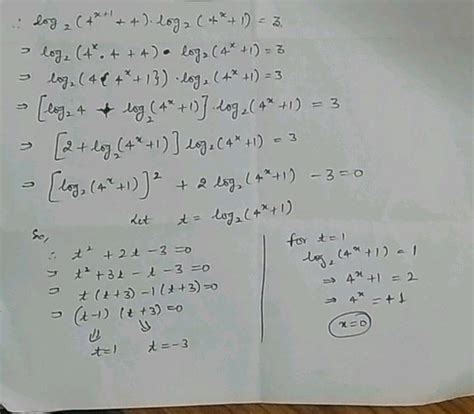 ∴ log₂(4^(x+1) + 4) · log₂(4^x + 1) = 3
⇒ log₂(4^x · 4 + 4) · log₂(4^x + 1) = 3
⇒ log₂(4{4^x + 1}) · log₂(4^x + 1) = 3
⇒ [log₂4 + log₂(4^x + 1)] · log₂(4^x + 1) = 3
⇒ [2 + log₂(4^x + 1)] log₂(4^x + 1) = 3
⇒ [log₂(4^x + 1)]² + 2 log₂(4^x + 1) − 3 = 0
Let t = log₂(4^x + 1)
So,
∴ t² + 2t − 3 = 0
⇒ t² + 3t − t − 3 = 0
⇒ t(t + 3) − 1(t + 3) = 0
⇒ (t − 1)(t + 3) = 0
⇓ ⇓
t = 1 t = −3
for t = 1
log₂(4^x + 1) = 1
⇒ 4^x + 1 = 2
⇒ 4^x = +1
x = 0